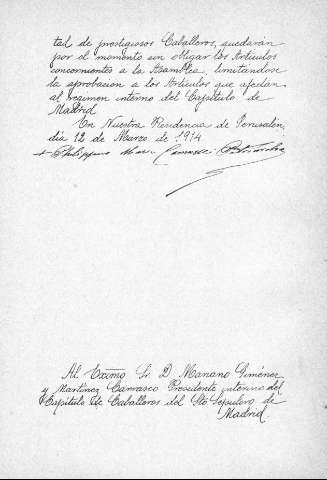 tad de prestigiosos Caballeros, quedarán
por el momento sin obligar los Artículos
concernientes a la Asamblea, limitandose
la aprobacion a los Artículos que afectan
al regimen interno del Capitulo de
Madrid
En Nuestra Residencia de Jerusalén,
dia 12 de Marzo de 1914
+ Philippus Maria Camassei Patriarcha
Al Excmo Sr D Mariano Giménez
y Martinez Carrasco Presidente interino del
Capitulo de Caballeros del Sto Sepulcro de
Madrid